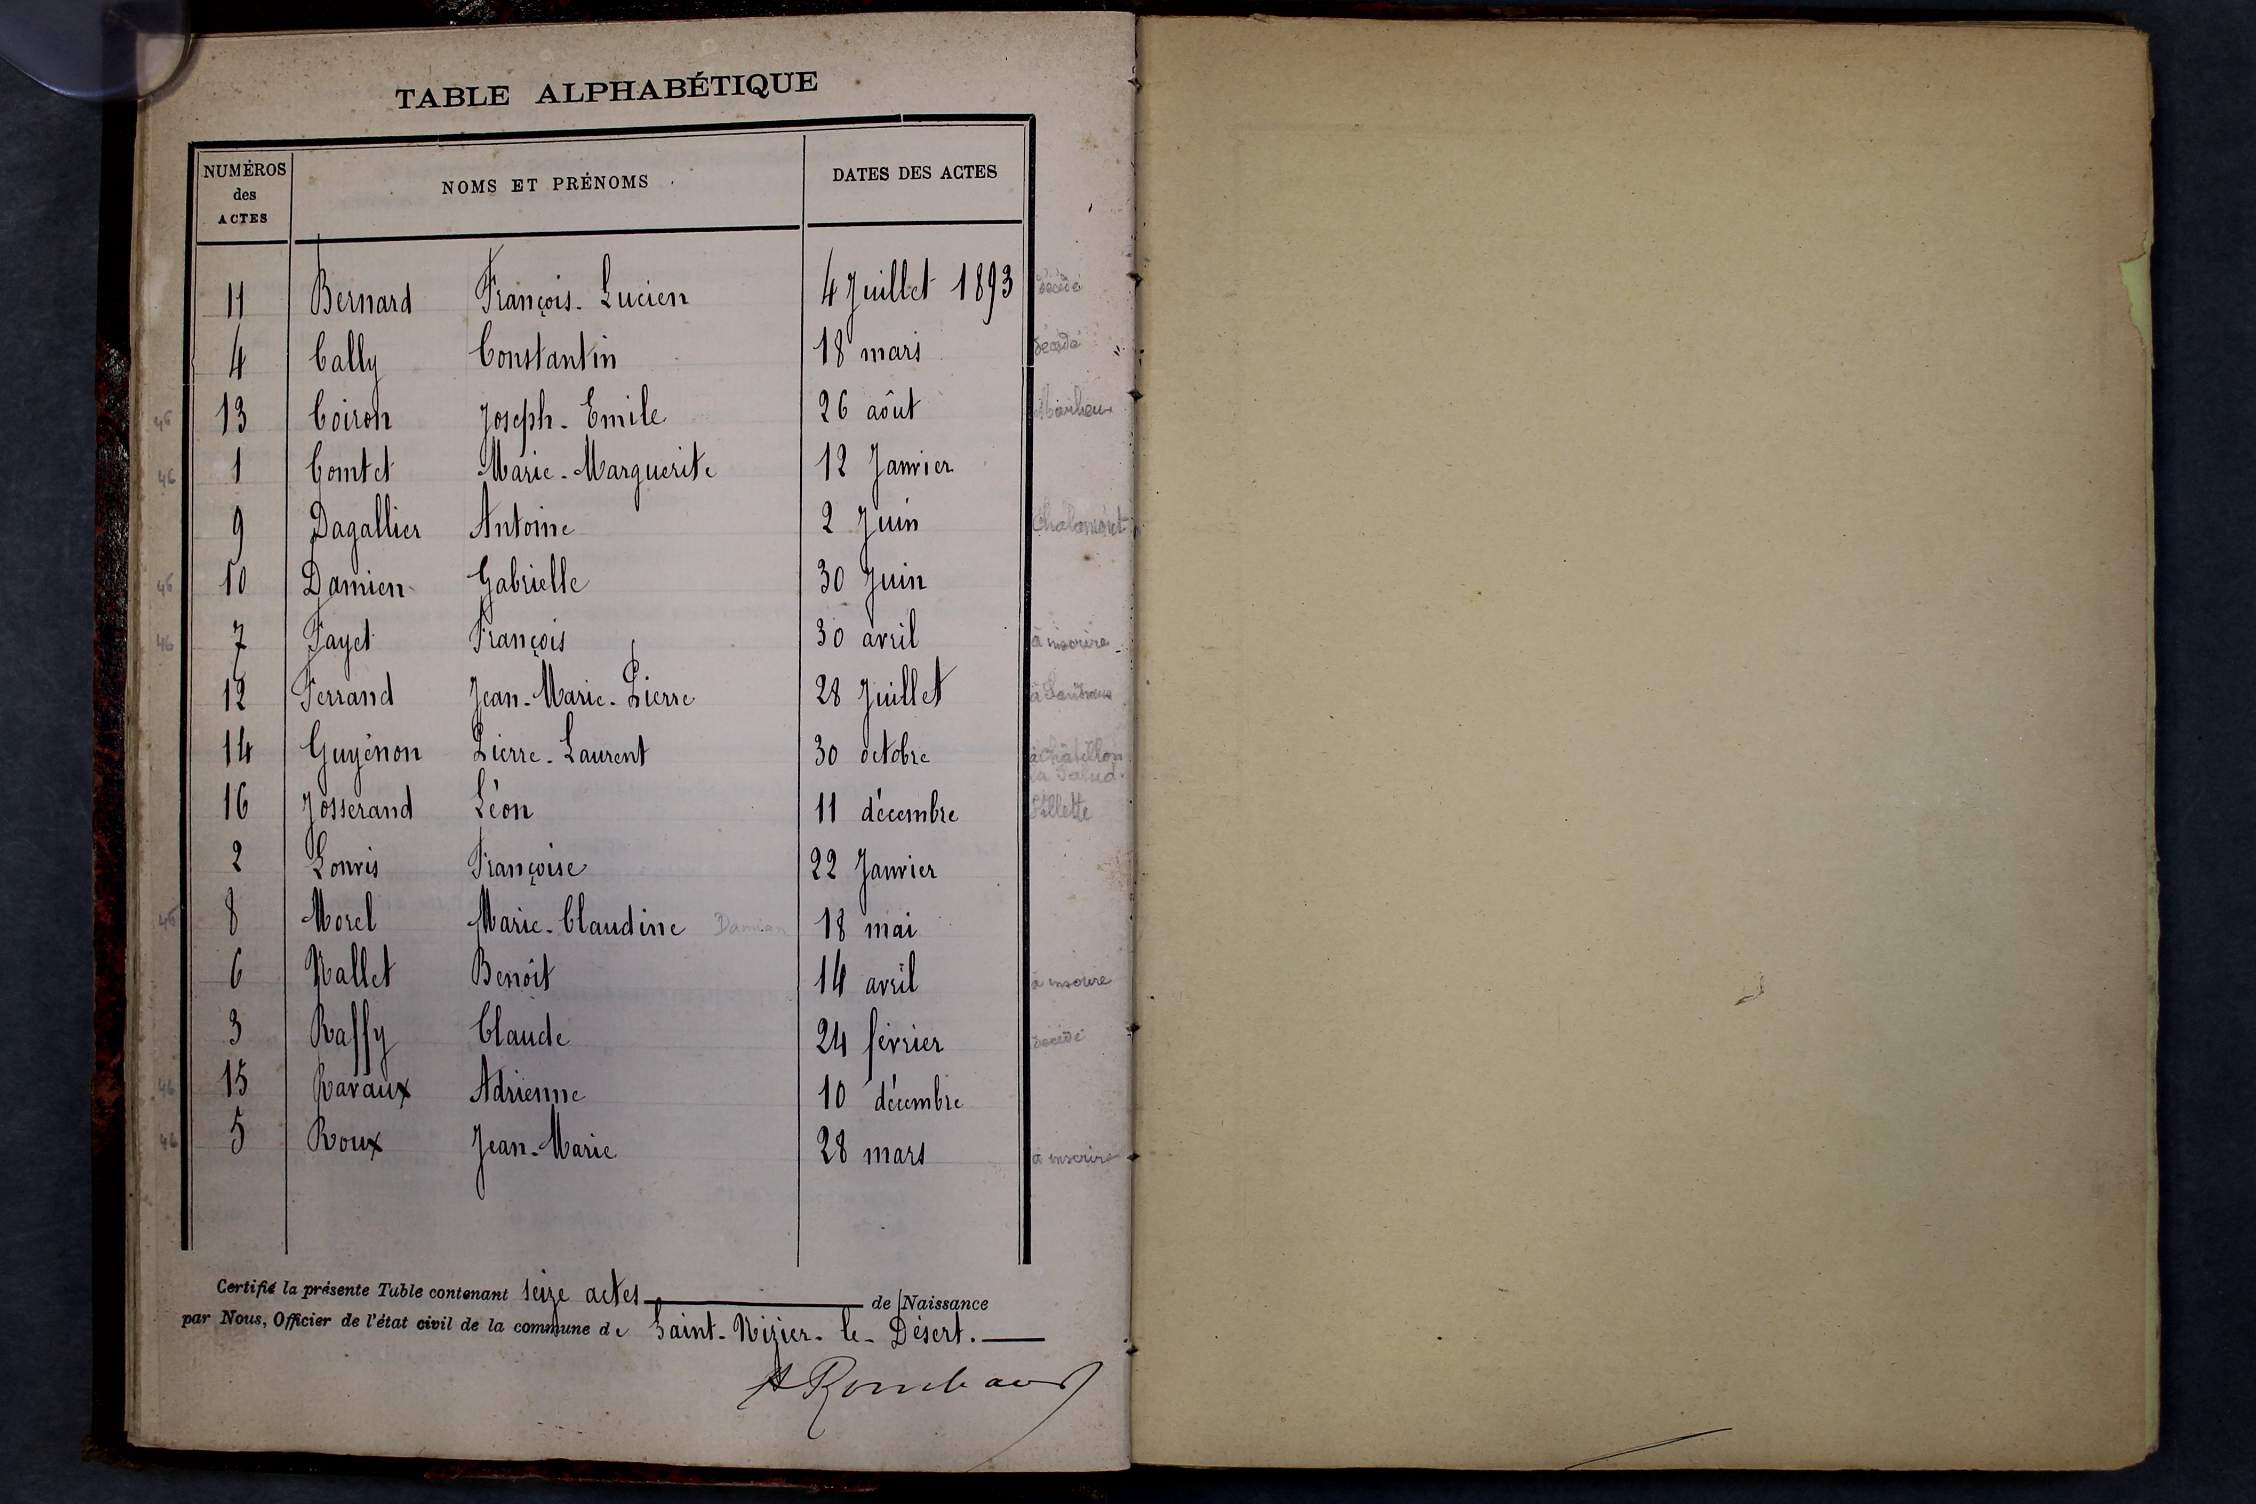 TABLE ALPHABÉTIQUE
NUMÉROS des ACTES NOMS ET PRÉNOMS DATES DES ACTES
11 Bernard François-Lucien 4 Juillet 1893 décédé
4 Cally Constantin 18 mars décédé
46 13 Coiron Joseph-Emile 26 août
46 1 Comtet Marie-Marguerite 12 Janvier
9 Dagallier Antoine 2 Juin Chalamont
46 10 Damien Gabrielle 30 Juin
46 7 Fayet François 30 avril à inscrire
12 Ferrand Jean-Marie-Pierre 28 Juillet
14 Guyénon Pierre-Laurent 30 octobre à Châtillon
la Palud
16 Josserand Léon 11 décembre
2 Louvis Françoise 22 Janvier
46 8 Morel Marie-Claudine Damian 18 mai
6 Nallet Benoît 14 avril à inscrire
3 Raffy Claude 24 février décédé
46 15 Ravaux Adrienne 10 décembre
46 5 Roux Jean-Marie 28 mars à inscrire
Certifié la présente Table contenant seize actes de Naissance
par Nous, Officier de l'état civil de la commune de Saint-Nizier-le-Désert.